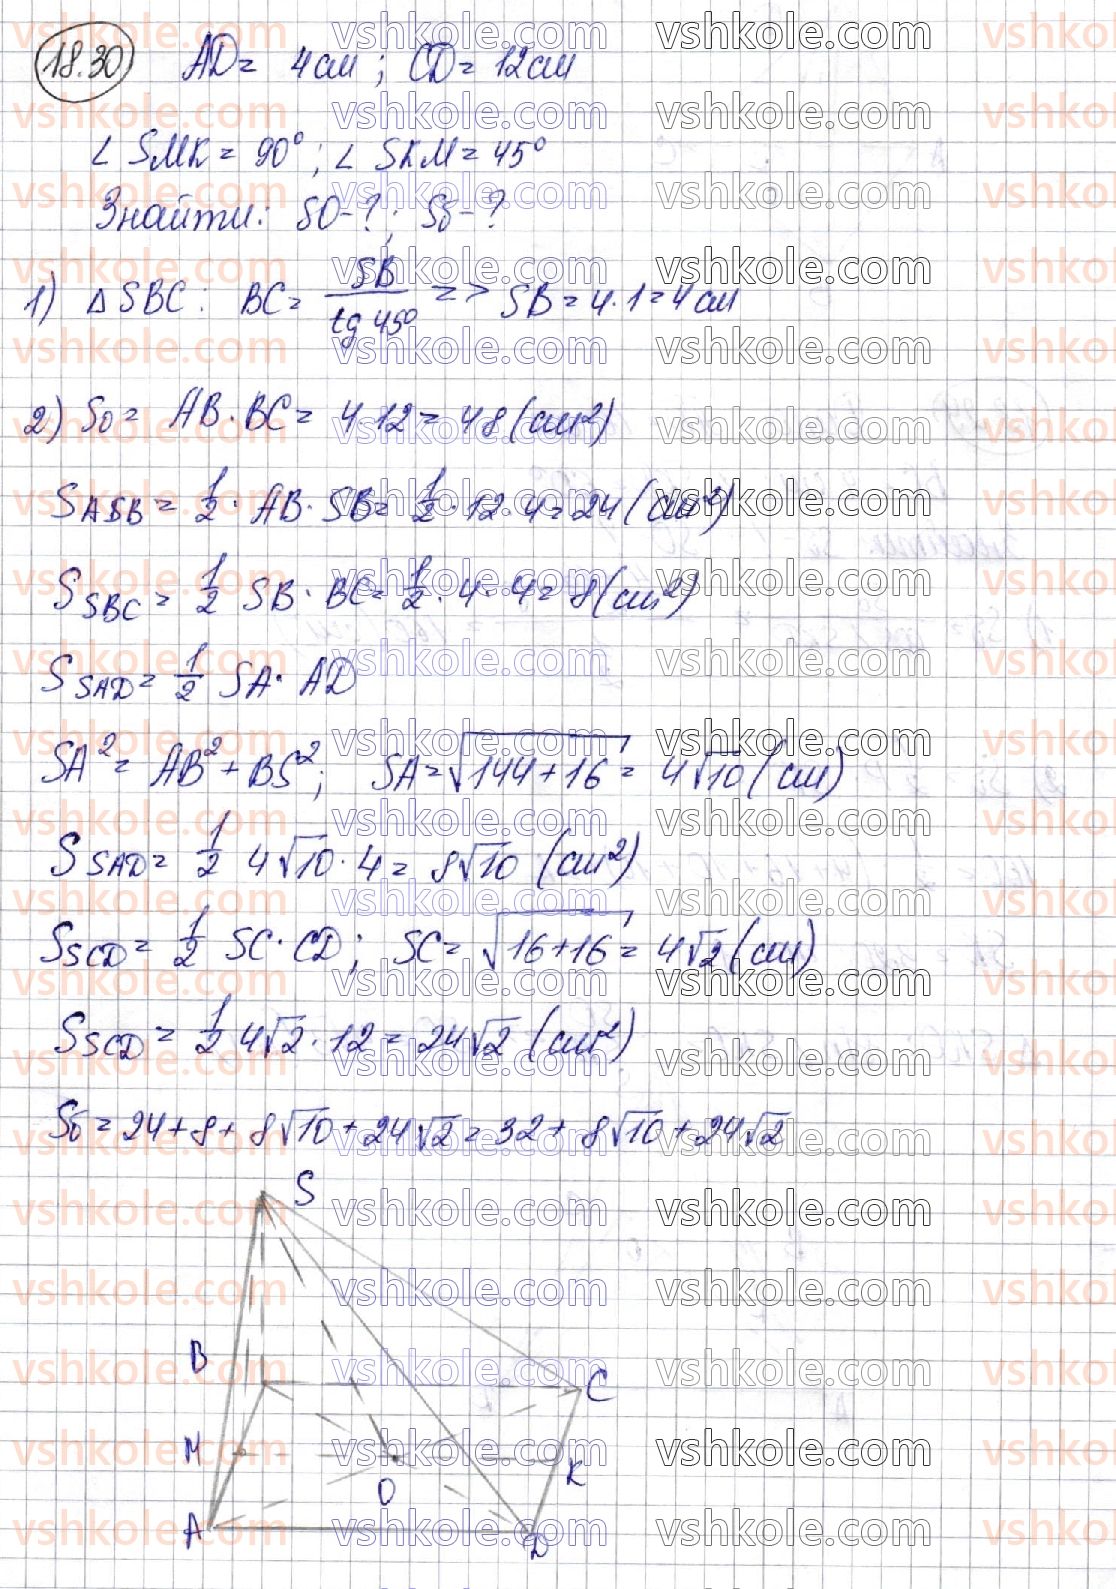 18.30 AD = 4 см; CD = 12 см
∠ SMK = 90°; ∠ SKM = 45°
Знайти: SO - ?; Sб - ?
1) △ SBC: BC = SB / tg 45° => SB = 4 · 1 = 4 см
2) So = AB · BC = 4 · 12 = 48 (см²)
S ASB = 1/2 · AB · SB = 1/2 · 12 · 4 = 24 (см²)
S SBC = 1/2 SB · BC = 1/2 · 4 · 4 = 8 (см²)
S SAD = 1/2 SA · AD
SA² = AB² + BS²; SA = √144 + 16 = 4√10 (см)
S SAD = 1/2 4√10 · 4 = 8√10 (см²)
S SCD = 1/2 SC · CD; SC = √16 + 16 = 4√2 (см)
S SCD = 1/2 4√2 · 12 = 24√2 (см²)
Sб = 24 + 8 + 8√10 + 24√2 = 32 + 8√10 + 24√2
S
B
C
M
K
O
A
D
vshkole.com